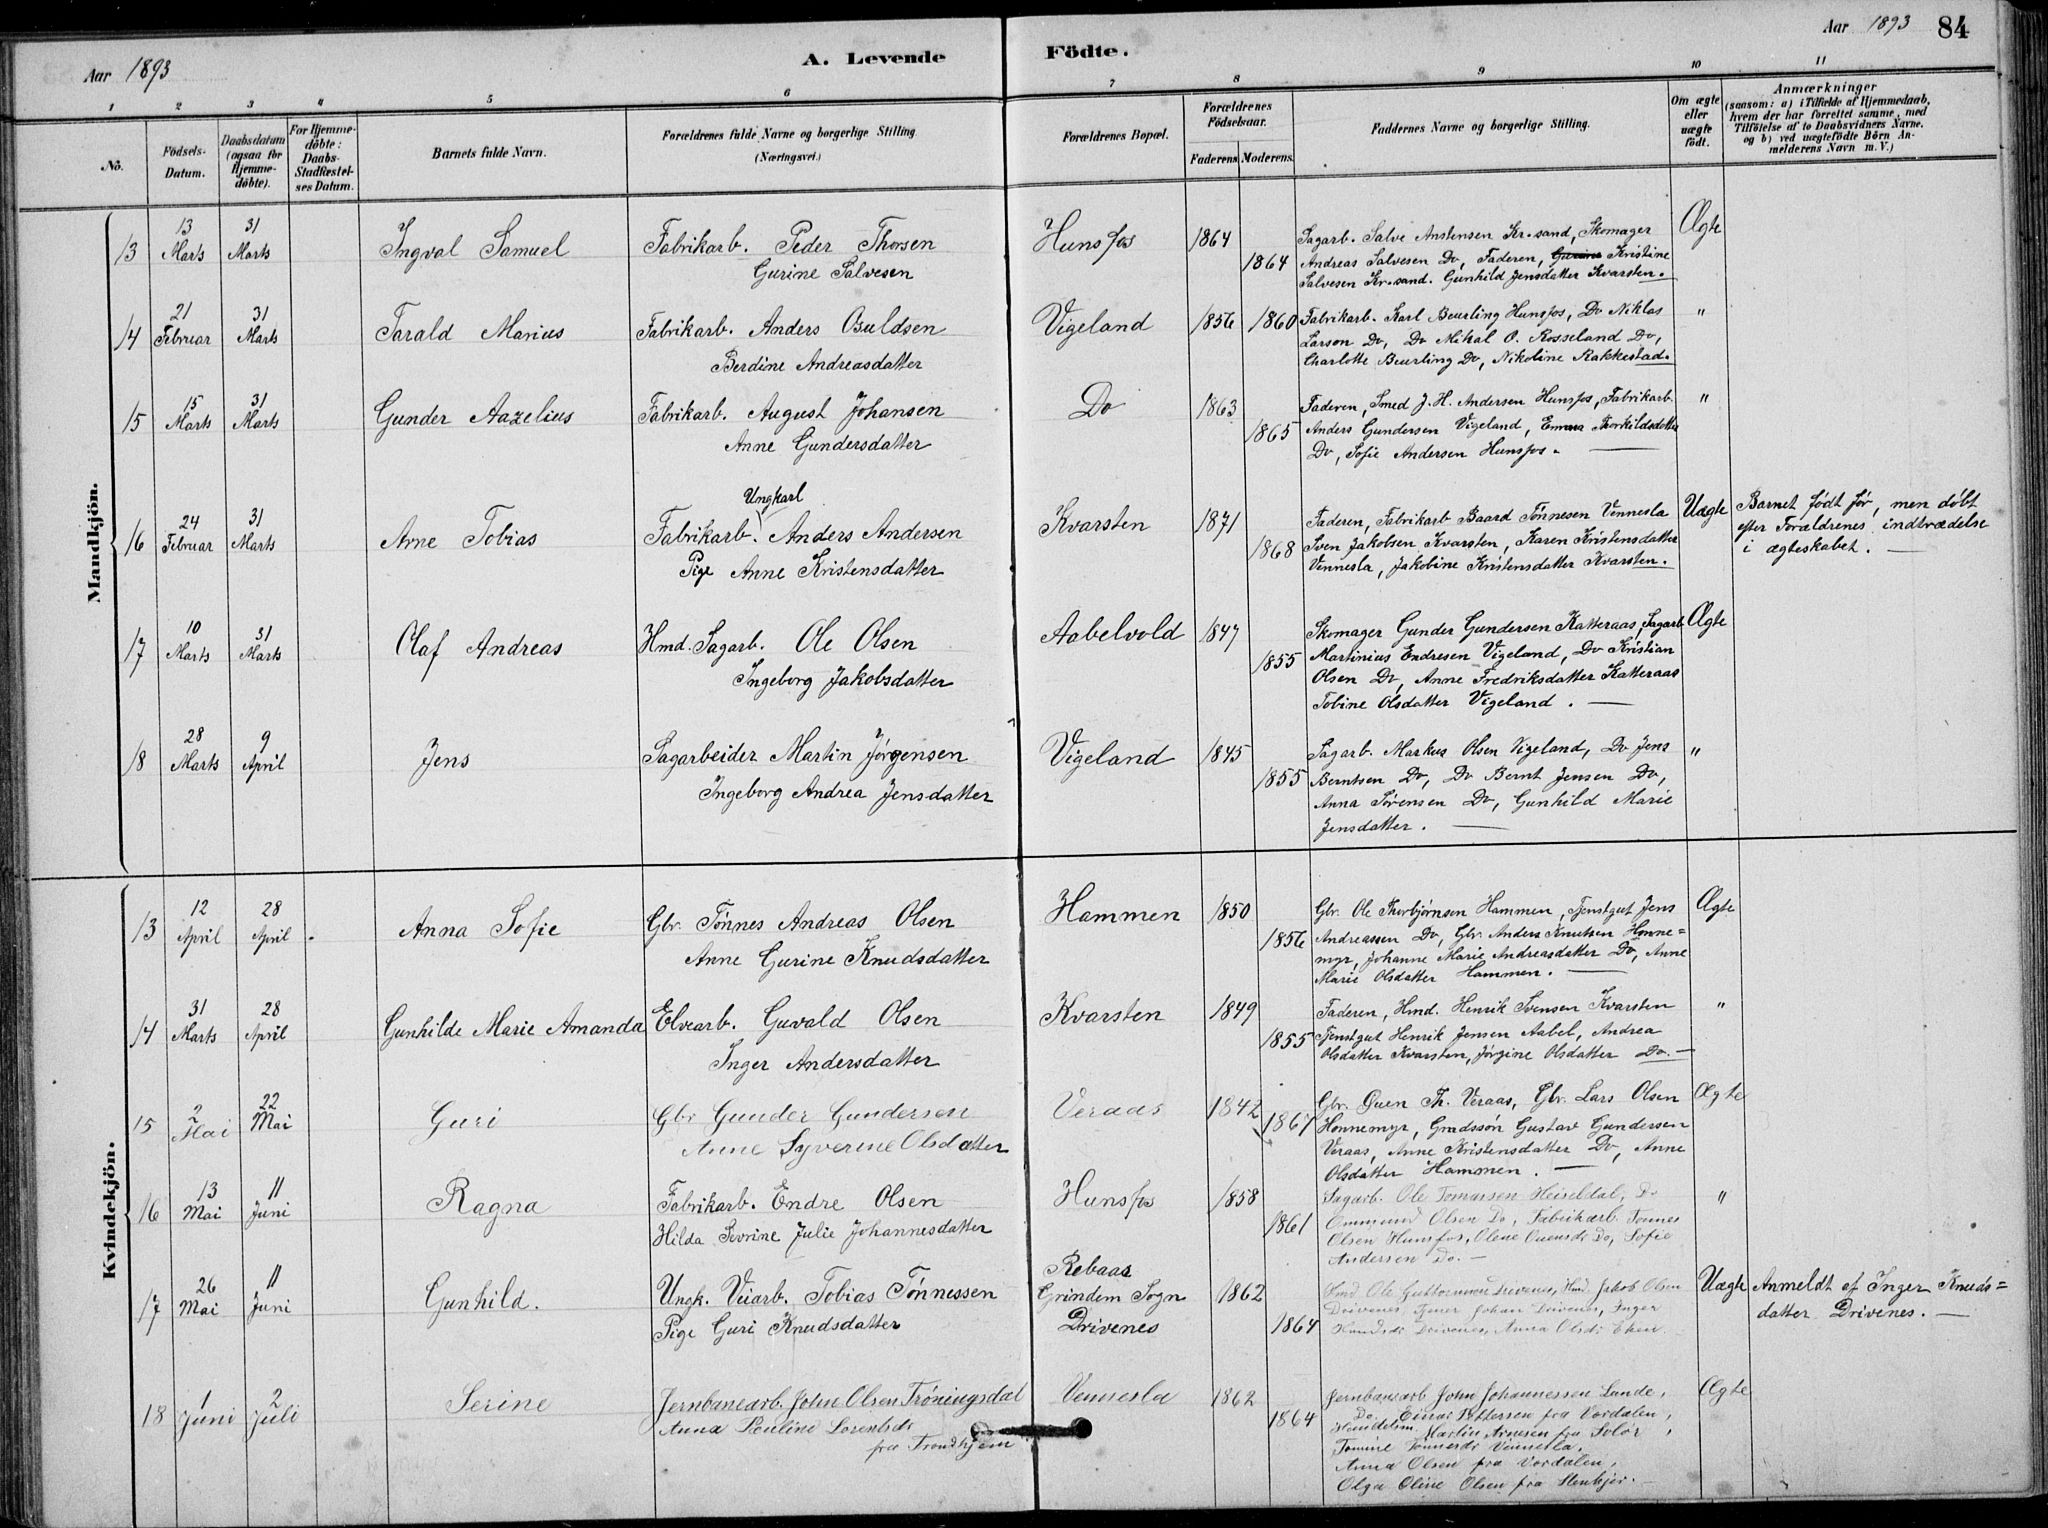 Aar 1893
A. Levende Födte.
Aar 1893 84
1 2 3 4 5 6 7 8 9 10 11
No.
Födsels-Datum.
Daabsdatum (ogsaa for Hjemmedöbte).
For Hjemmedöbte: Daabs-Stadfæstelses Datum.
Barnets fulde Navn.
Forældrenes fulde Navne og borgerlige Stilling.
(Næringsvei.)
Forældrenes Bopæl.
Forældrenes Födselsaar.
Faderens. Moderens.
Faddernes Navne og borgerlige Stilling.
Om ægte eller uægte födt.
Anmærkninger
(saasom: a) i Tilfælde af Hjemmedaab, hvem der har forrettet samme, med Tilföielse af to Daabsvidners Navne, og b) ved uægtefödte Börn Anmelderens Navn m. V.)
Mandkjön.
13 13 Marts 31 Marts Ingval Samuel Fabrikarb. Peder Thorsen
Gurine Salvesen
Hunsfos 1864 1864
Sagarb. Salve Anstensen Kr.sand, Skomager
Andreas Salvesen Do, Faderen, Gurine Kristine
Salvesen Kr.sand. Gunhild Jensdatter Kvarsten.
Ægte
14 21 Februar 31 Marts Tarald Marius Fabrikarb. Anders Osuldsen
Berdine Andreasdatter
Vigeland 1856 1860
Fabrikarb. Karl Beurling Hunsfos, Do Niklas
Larson Do, Do Mikal O. Rosseland Do,
Charlotte Beurling Do, Nikoline Rakkestad.
"
15 15 Marts 31 Marts Gunder Aazelius Fabrikarb. August Johansen
Anne Gundersdatter
Do 1863 1865
Faderen, Smed J. H. Andersen Hunsfos, Fabrikarb.
Anders Gundersen Vigeland, Emma Thorkildsdatter
Do, Sofie Andersen Hunsfos.
"
16 24 Februar 31 Marts Arne Tobias Ungkarl
Fabrikarb. Anders Andersen
Pige Anne Kristensdatter
Kvarsten 1871 1868
Faderen, Fabrikarb Baard Tönnesen Vennesla
Sven Jakobsen Kvarsten, Karen Kristensdatter
Vennesla, Jakobine Kristensdatter Kvarsten.
Uægte Barnet født før, men døbt
efter Forældrenes indtrædelse
i ægteskabet.
17 10 Marts 31 Marts Olaf Andreas Hmd. Sagarb. Ole Olsen
Ingeborg Jakobsdatter
Aabelvold 1847 1855
Skomager Gunder Gundersen Katteraas, Sagarb.
Martinius Endresen Vigeland, Do Kristian
Olsen Do, Anne Fredriksdatter Katteraas
Tobine Olsdatter Vigeland.
Ægte
18 28 Marts 9 April Jens Sagarbeider Martin Jörgensen
Ingeborg Andrea Jensdatter
Vigeland 1845 1855
Sagarb. Markus Olsen Vigeland, Do Jens
Berntsen Do, Do Bernt Jensen Do,
Anna Sörensen Do, Gunhild Marie
Jensdatter.
"
Kvindekjön.
13 12 April 28 April Anna Sofie Gbr. Tönnes Andreas Olsen
Anne Gurine Knudsdatter
Hammen 1850 1856
Gbr. Ole Thorbjørnsen Hammen, Tjenstgut Jens
Andreassen Do, Gbr. Anders Knutsen Honne=
myr, Johanne Marie Andreasdatter Do, Anne
Marie Olsdatter Hammen.
Ægte
14 31 Marts 28 April Gunhilde Marie Amanda Elvearb. Guvald Olsen
Inger Andersdatter
Kvarsten 1849 1855
Faderen, Hmd. Henrik Svensen Kvarsten
Tjenstgut Henrik Jensen Aabel, Andrea
Olsdatter Kvarsten, Jørgine Olsdatter Do.
"
15 2 Mai 22 Mai Guri Gbr Gunder Gundersen
Anne Syverine Olsdatter
Veraas 1842 1867
Gbr. Ouen Th. Veraas, Gbr. Lars Olsen
Honnemyr, Grædssøn Gustav Gundersen
Veraas, Anne Kristensdatter Do, Anne
Olsdatter Hammen.
Ægte
16 13 Mai 11 Juni Ragna Fabrikarb. Endre Olsen
Hilda Sevrine Julie Johannesdatter
Hunsfos 1858 1861
Sagarb. Ole Tomassen Heiseldal, Do
Ommund Olsen Do, Fabrikarb. Tönnes
Olsen Hunsfos, Olene Ouensdr Do, Sofie
Andersen Do.
"
17 26 Mai 11 Juni Gunhild. Ungk. Veiarb. Tobias Tönnessen
Pige Guri Knudsdatter
Rebaas
Grindem Sogn
Drivenes
1862 1864
Hmd Ole Guttormsen Drivenes, Hmd. Jakob Olsen
Drivenes, Tjener Johan Drivenes, Inger
Knudsdr Drivenes, Anna Olsdr Eken.
Uægte Anmeldt af Inger Knuds=
datter Drivenes.
18 1 Juni 2 Juli Serine Jernbanearb. John Olsen Tröningsdal
Anna Pauline Lorentsdr
fra Trondhjem
Vennesla 1862 1864
Jernbanearb John Johannessen Lunde,
Do Einar Pettersen fra Vordalen,
Handelsm. Martin Arnesen fra Solör,
Tomine Tönnesdr Vennesla,
Anna Olsen fra Vordalen,
Olga Oline Olsen fra Stenkjer.
Ægte